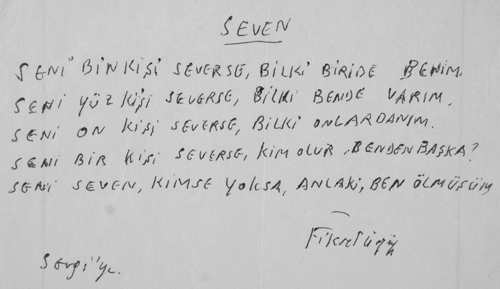 SEVEN
SENİ BİN KİŞİ SEVERSE, BİLKİ BİRİDE BENİM.
SENİ YÜZ KİŞİ SEVERSE, BİLKİ BENDE VARIM.
SENİ ON KİŞİ SEVERSE, BİLKİ ONLARDANIM.
SENİ BİR KİŞİ SEVERSE, KİM OLUR, BENDEN BAŞKA?
SENİ SEVEN, KİMSE YOKSA, ANLAKİ, BEN ÖLMÜŞÜM
Fikret
Sevgi'ye.